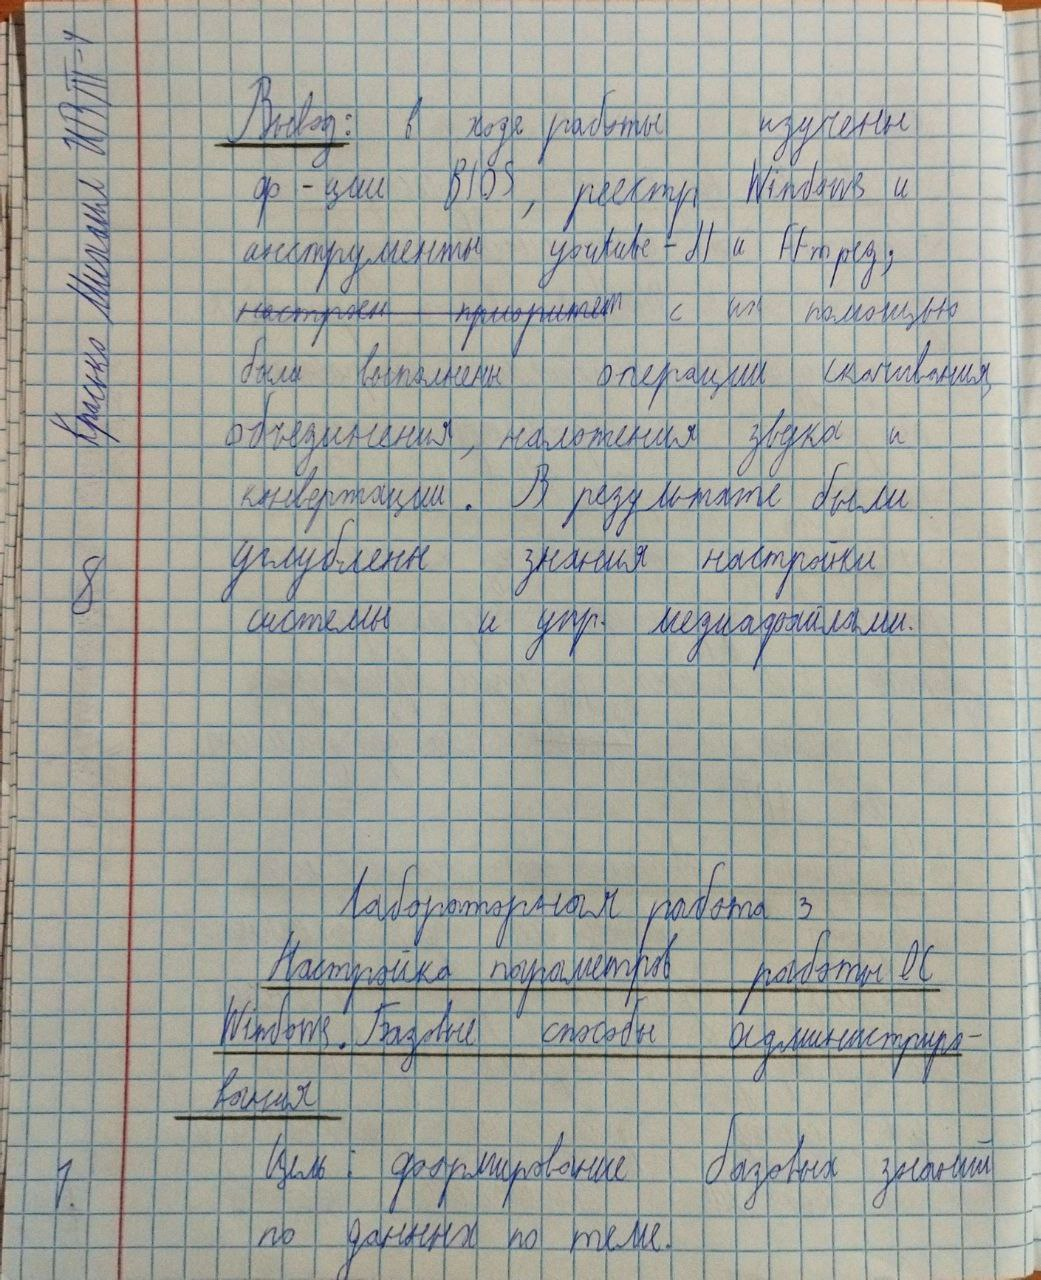 Вывод: в ходе работы изучены
ф-ции BIOS, реестр Windows и
инструменты youtube-dl и ffmpeg;
настроен приоритет с их помощью
были выполнены операции скачивания,
объединения, наложения звука и
конвертации. В результате были
углублены знания настройки
системы и упр. медиафайлами.
Лабораторная работа 3
Настройка параметров работы ОС
Windows. Базовые способы администриро-
вания
1. Цель: формирование базовых знаний
по данных по теме.
Михаил
8